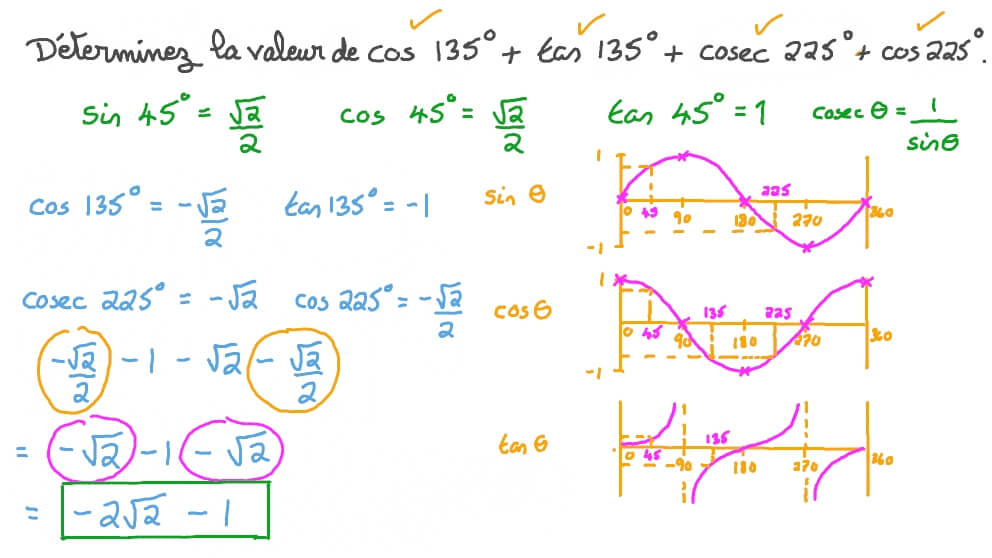 Déterminez la valeur de cos 135° + tan 135° + cosec 225° + cos 225°.
sin 45° = √2/2 cos 45° = √2/2 tan 45° = 1 cosec θ = 1/sin θ
cos 135° = -√2/2 tan 135° = -1
cosec 225° = -√2 cos 225° = -√2/2
-√2/2 - 1 - √2 - √2/2
= -√2 - 1 - √2
= -2√2 - 1
sin θ
1
225
0 45 90 180 270 360
-1
cos θ
1
135 225
0 45 90 180 270 360
-1
tan θ
135
0 45 90 180 270 360